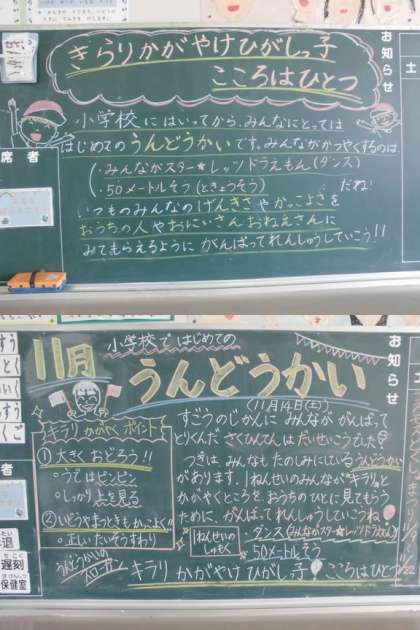 きらりかがやけひがしっ子
こころはひとつ
お知らせ
土
小学校にはいってから、みんなにとっては
はじめてのうんどうかいです。みんながかがやくのは
・みんながスター★レッツドラえもん(ダンス)
・50メートルそう(ときょうそう)
だね!
いつものみんなのげんきさやかっこよさを
おうちの人やおにいさんおねえさんに
みてもらえるように がんばってれんしゅうしていこう!!
席者
11月
小学校ではじめての
うんどうかい
(11月14日(土))
お知らせ
土
キラリ かがやく ポイント
①大きく おどろう!!
○うではピンピン
○しっかり 上を見る
②いどうやまつときも かっこよく!!
○正しいたいそうすわり
すごうのじかんに みんなが がんばって
とりくんだ さくひんてんは だいせいこうでした
つぎは、みんなもたのしみにしている うんどうかい
があります。1ねんせいのみんなが"キラリ"と
かがやくところを おうちのひとに見てもらう
ために、がんばってれんしゅうしていこうね
1ねんせいのしゅもく
・ダンス(みんながスター★レッツドラえもん)
・50メートルそう
うんどうかいのスローガン
キラリ かがやけ ひがしっ子 こころはひとつ
者
退
遅刻
保健室